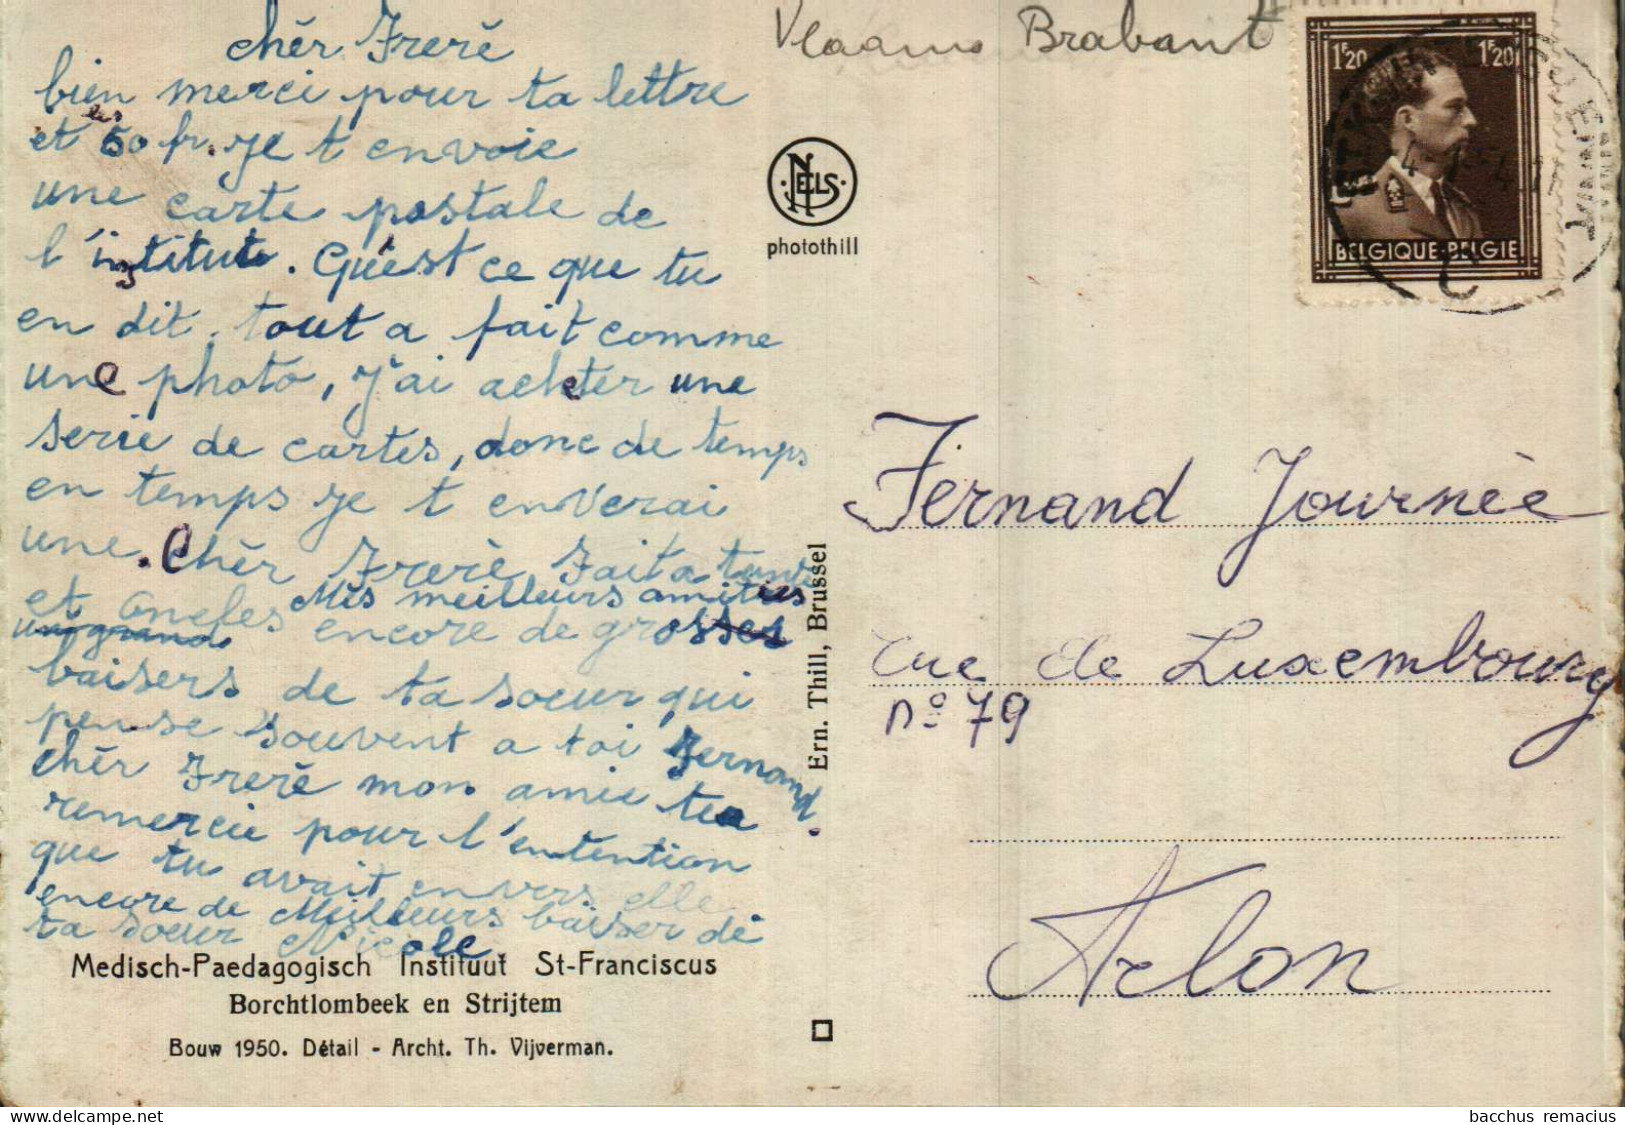 Chèr Frerè
bien merci pour ta lettre
et les 50 fr. Je t envoie
une carte postale de
l'institute. Qu'est ce que tu
en dit, tout a fait comme
une photo, j'ai acheter une
serie de cartes, donc de temps
en temps je t enverai
une. Chèr Frerè Fait a tante
Mes meilleurs amities
et encore de grosses
un grand
baisers de ta soeur qui
pense souvent a toi Fernand.
Chèr Frerè mon amie te
remercie pour l'entention
que tu avait envers elle
encore de Meilleurs baiser de
ta soeur Nicole
Medisch-Paedagogisch Instituut St-Franciscus
Borchtlombeek en Strijtem
Bouw 1950. Détail - Archt. Th. Vijverman.
Vlaams Brabant
NELS
photothill
Ern. Thill, Brussel
1F20 1F20
BELGIQUE-BELGIE
Fernand Journèe
rue de Luxembourg
n° 79
Arlon
bacchus remacius